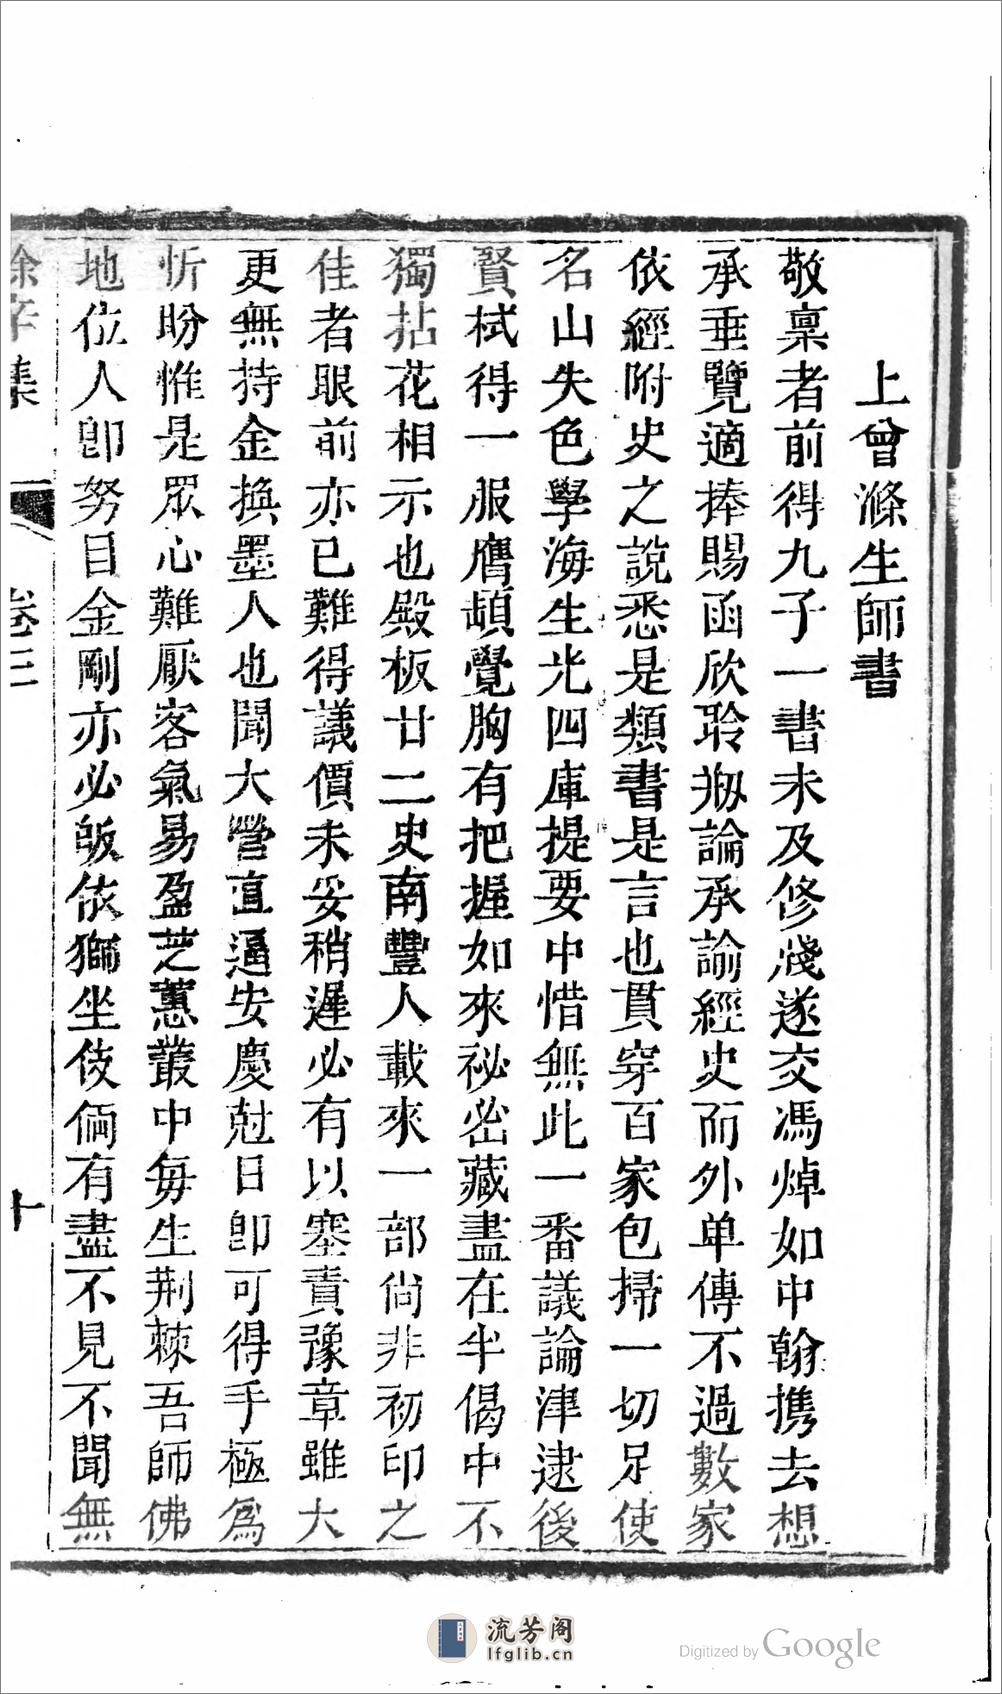 上曾滌生師書
敬稟者前得九子一書未及修牋遂交馮焯如中翰携去想
承垂覽適捧賜函欣聆剙論承諭經史而外单傳不過數家
依經附史之說悉是類書是言也貫穿百家包掃一切足使
名山失色學海生光四庫提要中惜無此一番議論津逮後
賢栻得一服膺頓覺胸有把握如來祕密藏盡在半偈中不
獨拈花相示也殿板廿二史南豐人載來一部尙非初印之
佳者眼前亦已難得議價未妥稍遲必有以塞責豫章雖大
更無持金換墨人也聞大營直逼安慶尅日卽可得手極爲
忻盼惟是眾心難厭客氣易盈芝蕙叢中每生荆棘吾師佛
地位人卽努目金剛亦必皈依獅坐伎倆有盡不見不聞無
餘辛集 卷三 十
流芳阁
lfglib.cn
Digitized by Google